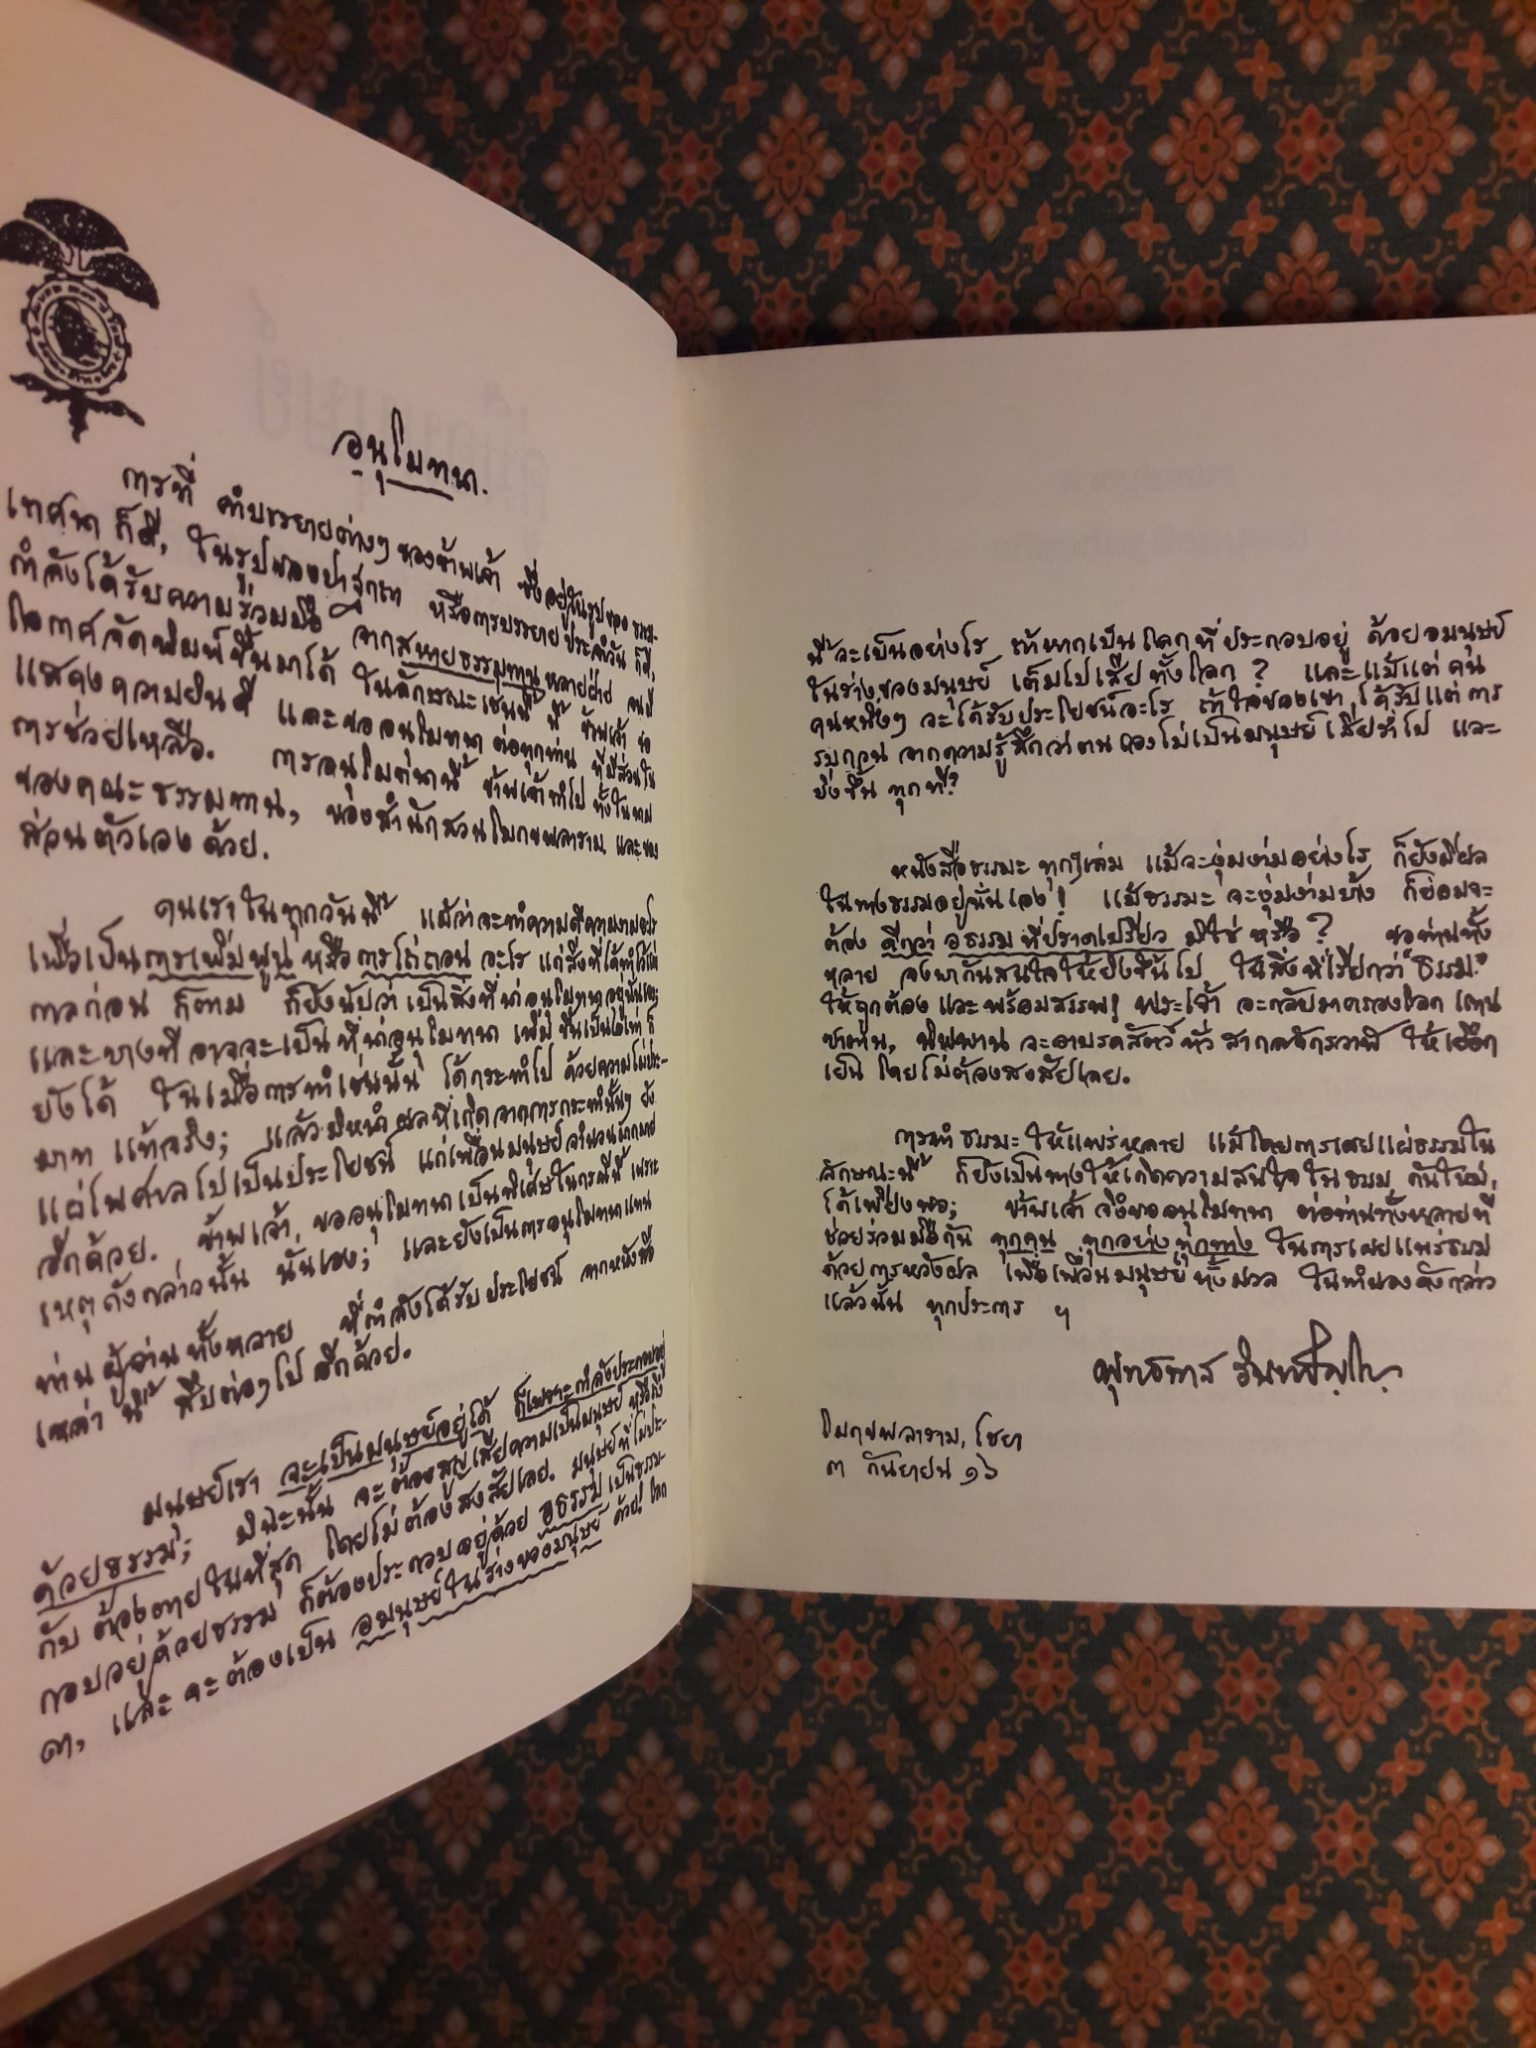 อนุโมทนา.
การที่ คำบรรยายต่างๆ ของข้าพเจ้า ซึ่งอยู่ในรูปของ ธรรม-
เทศนา ก็ดี, ในรูปของปาฐกถา หรือการบรรยาย ประจำวัน ก็ดี,
กำลังได้รับความร่วมมือ จากสหายธรรมทาน หลายฝ่าย จนมี
โอกาศจัดพิมพ์ขึ้นมาได้ ในลักษณะเช่นนี้ นี้ ข้าพเจ้า ขอ
แสดงความยินดี และขออนุโมทนา ต่อทุกท่าน ที่มีส่วนใน
การช่วยเหลือ. การอนุโมทนานี้ ข้าพเจ้าทำไป ทั้งในนาม
ของคณะธรรมทาน, ของสำนักสวนโมกขพลาราม, และของ
ส่วนตัวเอง ด้วย.
คนเราในทุกวันนี้ แม้ว่าจะทำความดีความงามอะไร
เพื่อเป็นการเพิ่มพูน หรือการไถ่ถอน อะไร แก่สิ่งที่ได้ทำไว้แต่
กาลก่อน ก็ตาม ก็ยังนับว่าเป็นสิ่งที่น่าอนุโมทนาอยู่นั่นเอง;
และบางที อาจจะเป็นที่น่าอนุโมทนา เพิ่มขึ้นเป็นไหนๆ ก็
ยังได้ ในเมื่อการทำเช่นนั้น ได้กระทำไป ด้วยความไม่ประ-
มาท แท้จริง; แล้วมีหนำ ผลที่เกิดจากการกระทำนั้นๆ ยัง
แผ่ไพศาลไปเป็นประโยชน์ แก่เพื่อนมนุษย์จำนวนมากมาย
อีกด้วย. ข้าพเจ้า, ขออนุโมทนาเป็นพิเศษในกรณีนี้ เพราะ
เหตุดังกล่าวนั้น นั่นเอง; และยังเป็นการอนุโมทนาแทน
ท่านผู้อ่านทั้งหลาย ที่กำลังได้รับประโยชน์ จากหนังสือ
เหล่านี้ สืบต่อๆไป อีกด้วย.
มนุษย์เรา จะเป็นมนุษย์อยู่ได้ ก็เพราะกำลังประกอบอยู่
ด้วยธรรม; มิฉะนั้น จะต้องสูญเสียความเป็นมนุษย์ หรือถึง
กับ ต้องตายในที่สุด โดยไม่ต้องสงสัยเลย. มนุษย์ที่ไม่ประ-
กอบอยู่ด้วยธรรม ก็ต้องประกอบอยู่ด้วย อธรรม เป็นธรรม-
ดา, และ จะต้องเป็น อมนุษย์ในร่างของมนุษย์ ด้วย! โลก
นี้จะเป็นอย่างไร ถ้าหากเป็นโลกที่ประกอบอยู่ ด้วยอมนุษย์
ในร่างของมนุษย์ เต็มไปเสียทั้งโลก? และแม้แต่คน
คนหนึ่งๆ จะได้รับประโยชน์อะไร ถ้าใจของเขา ได้รับแต่การ
รบกวน จากความรู้สึกว่าตนเองไม่เป็นมนุษย์ เสียร่ำไป และ
ยิ่งขึ้น ทุกที?
หนังสือธรรมะ ทุกๆเล่ม แม้จะงุ่มง่ามอย่างไร ก็ยังมีผล
ในทางธรรมอยู่นั่นเอง! แม้ธรรมะ จะงุ่มง่ามบ้าง ก็ย่อมจะ
ต้อง ดีกว่า อธรรมที่ปราดเปรียว มิใช่ หรือ? ขอท่านทั้ง
หลาย จงพากันสนใจให้ยิ่งขึ้นไป ในสิ่งที่เรียกว่า "ธรรม"
ให้ถูกต้อง และพร้อมสรรพ! พระเจ้า จะกลับมาครองโลก แทน
ซาตาน, นิพพาน จะอาบรดสัตว์ ทั่ว สากลจักรวาฬ ให้เยือก
เย็น โดยไม่ต้องสงสัยเลย.
การทำธรรมะ ให้แพร่หลาย แม้โดยการเผยแผ่ธรรมใน
ลักษณะนี้ ก็ยังเป็นทางให้เกิดความสนใจในธรรม กันใหม่,
ได้เพียงพอ; ข้าพเจ้า จึงขออนุโมทนา ต่อท่านทั้งหลายที่
ช่วยร่วมมือกัน ทุกคน ทุกอย่าง ทุกทาง ในการเผยแพร่ธรรม
ด้วยการหวังผล เพื่อเพื่อนมนุษย์ทั้งมวล ในทำนองดังกล่าว
แล้วนั้น ทุกประการ ฯ
พุทธทาส อินทปัญโญ.
โมกขพลาราม, ไชยา
๓ กันยายน ๑๖